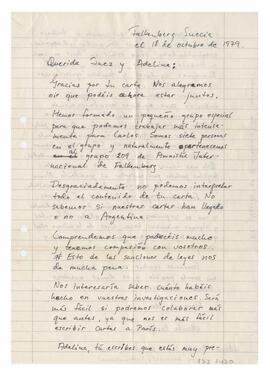 Falkenberg Suecia
el 18 de octubre de 1979.
Querida Inez y Adelina:
Gracias por su carta. Nos alegramos
oir que podéis ahora estar juntos.
Hemos formado un pequeño grupo especial
para que podamos trabajar más intensa-
mente para Carlos. Somos siete personas
en el grupo y naturalmente pertenecemos
al grupo 209 de Amnistía Inter-
nacional de Falkenberg.
Desgraciadamente no podemos interpretar
todo el contenido de tu carta. No
sabemos si nuestras cartas han llegado
o no a Argentina.
Comprendemos que padecéis mucho
y tenemos compasión con vosotros.
Esto de las sanciones de leyes nos
da mucha pena.
Nos interesaría saber cuánto habéis
hecho en vuestras investigaciones. Será
más fácil si podremos colaborar más
que antes, ya que nos es más fácil
escribir cartas a París.
Adelina, tú escribes que estás muy pre-